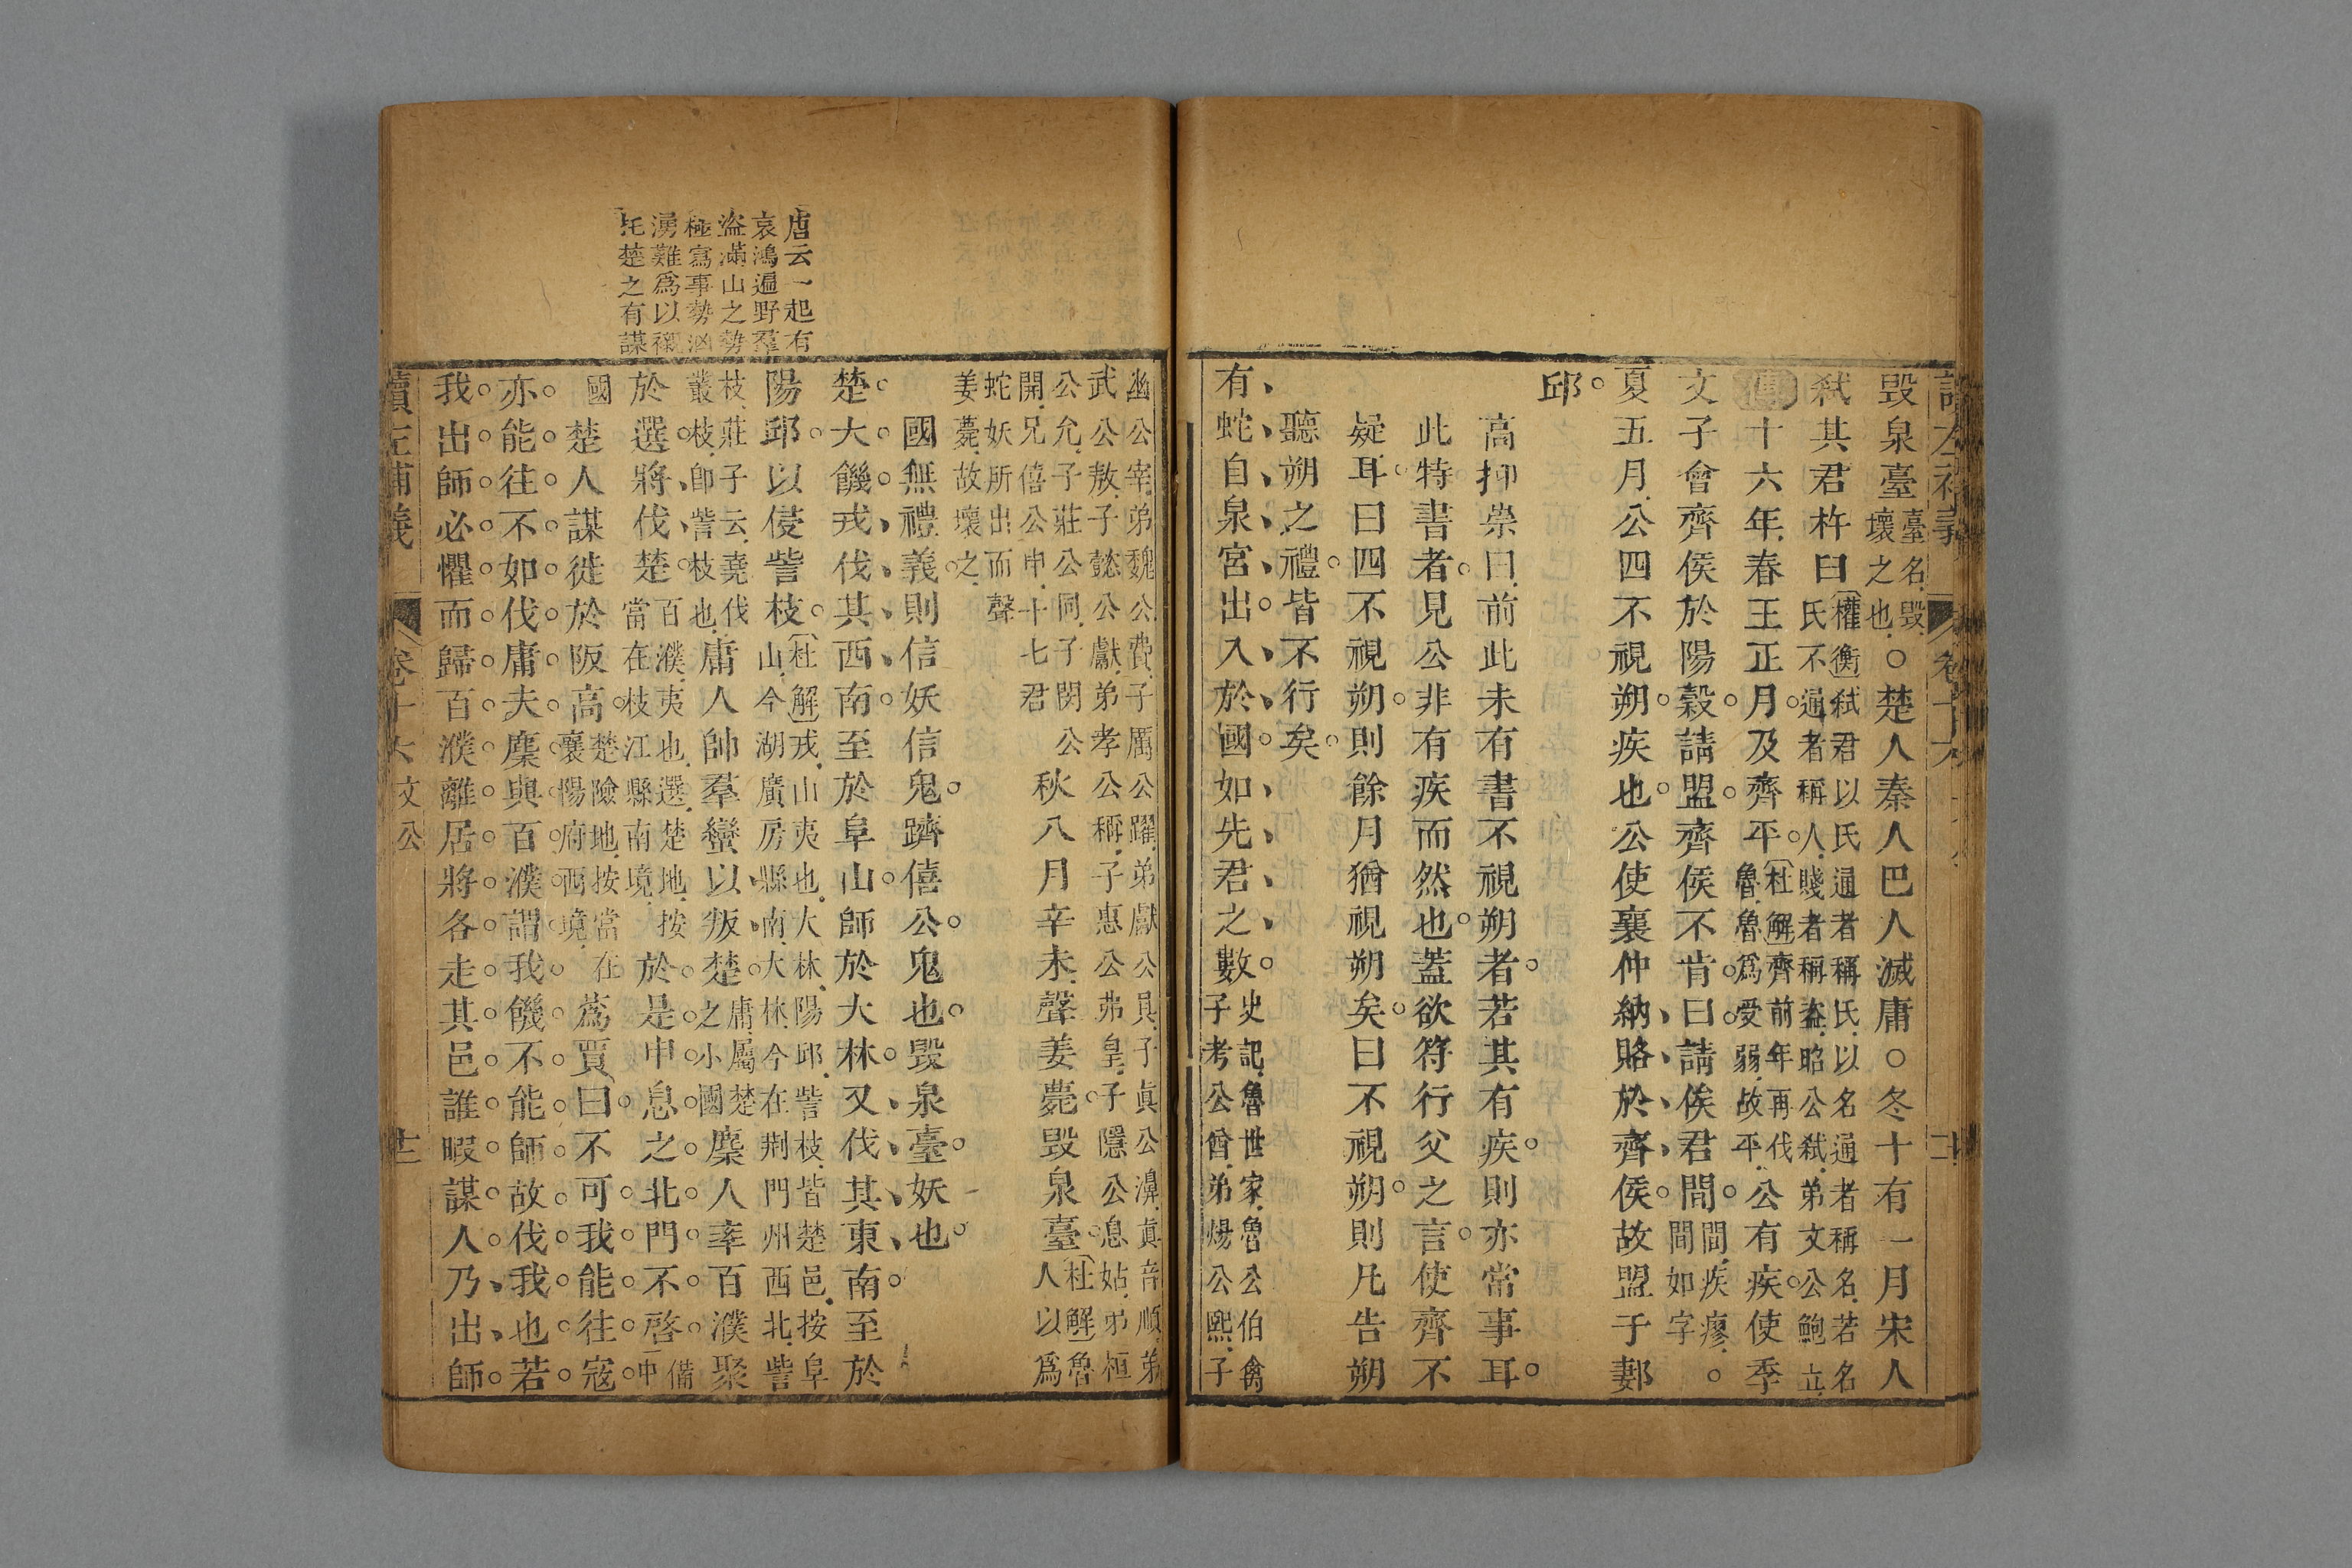 毀泉臺臺名毀壞之也○楚人秦人巴人滅庸○冬十有一月宋人
弑其君杵臼權衡弑君以氏通者稱氏以名通者稱名若名氏不通者稱人賤者稱盜昭公弑弟文公鮑立
傳十六年春王正月及齊平杜解齊前年再伐魯魯爲受弱故平公有疾使季
文子會齊侯於陽穀請盟齊侯不肯曰請俟君間間疾瘳間如字
夏五月公四不視朔疾也公使襄仲納賂於齊侯故盟于郪
邱
高抑崇曰前此未有書不視朔者若其有疾則亦常事耳
此特書者見公非有疾而然也蓋欲符行父之言使齊不
疑耳曰四不視朔則餘月猶視朔矣曰不視朔則凡告朔
聽朔之禮皆不行矣
有蛇自泉宮出入於國如先君之數史記魯世家魯公伯禽子考公酋弟煬公熙子
唐云一起有
哀鴻遍野羣
盜滿山之勢
極寫事勢洶
湧難爲以襯
托楚之有謀
幽公宰弟魏公費子厲公躍弟獻公具子眞公濞眞音順弟
武公敖子懿公獻弟孝公稱子惠公弗皇子隱公息姑弟桓
公允子莊公同子閔公開兄僖公申十七君秋八月辛未聲姜薨毀泉臺杜解魯人以爲
蛇妖所出而聲姜薨故壞之
國無禮義則信妖信鬼躋僖公鬼也毀泉臺妖也
楚大饑戎伐其西南至於阜山師於大林又伐其東南至於
陽邱以侵訾枝杜解戎山夷也大林陽邱訾枝皆楚邑按阜山今湖廣房縣南大林今在荆門州西北訾
枝莊子云堯伐叢枝卽訾枝也庸人帥羣蠻以叛楚庸屬楚之小國麇人率百濮聚
於選將伐楚百濮夷也選楚地按當在枝江縣南境於是申息之北門不啓備中
國楚人謀徙於阪高楚險地按當在襄陽府西境蔿賈曰不可我能往寇
亦能往不如伐庸夫麇與百濮謂我饑不能師故伐我也若
我出師必懼而歸百濮離居將各走其邑誰暇謀人乃出師
讀左補義 卷十六 文公